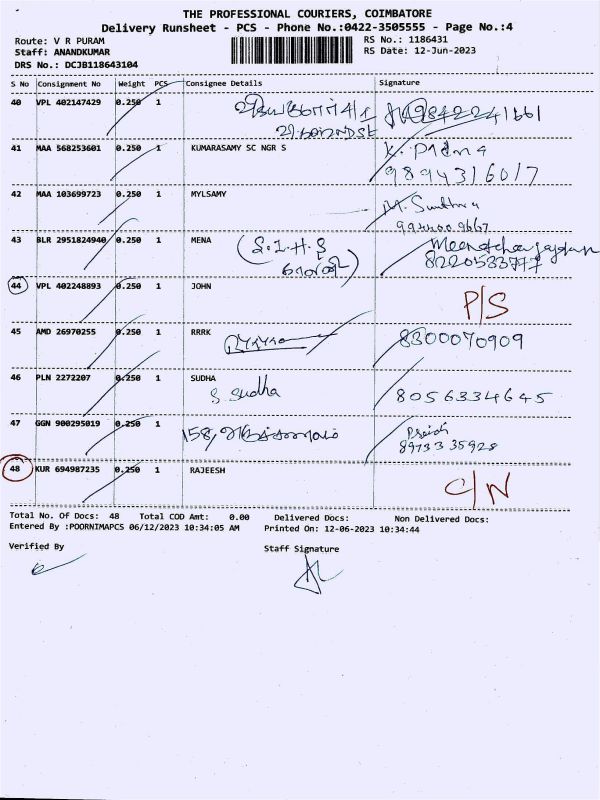 THE PROFESSIONAL COURIERS, COIMBATORE
Delivery Runsheet - PCS - Phone No.:0422-3505555 - Page No.:4
Route: V R PURAM RS No.: 1186431
Staff: ANANDKUMAR RS Date: 12-Jun-2023
DRS No.: DCJB118643104
S No Consignment No Weight PCS Consignee Details Signature
40 VPL 402147429 0.250 1 9842241661
41 MAA 568253601 0.250 1 KUMARASAMY SC NGR S K. Padma
9894316017
42 MAA 103699723 0.250 1 MYLSAMY
43 BLR 2951824940 0.250 1 MENA (S.I.H.S
8220533777
44 VPL 402248893 0.250 1 JOHN P/S
45 AMD 26970255 0.250 1 RRRK 8300070909
46 PLN 2272207 0.250 1 SUDHA
S Sudha 8056334645
47 GGN 900295019 0.250 1 158,
89733 35928
48 KUR 694987235 0.250 1 RAJEESH C/N
Total No. Of Docs: 48 Total COD Amt: 0.00 Delivered Docs: Non Delivered Docs:
Entered By :POORNIMAPCS 06/12/2023 10:34:05 AM Printed On: 12-06-2023 10:34:44
Verified By Staff Signature